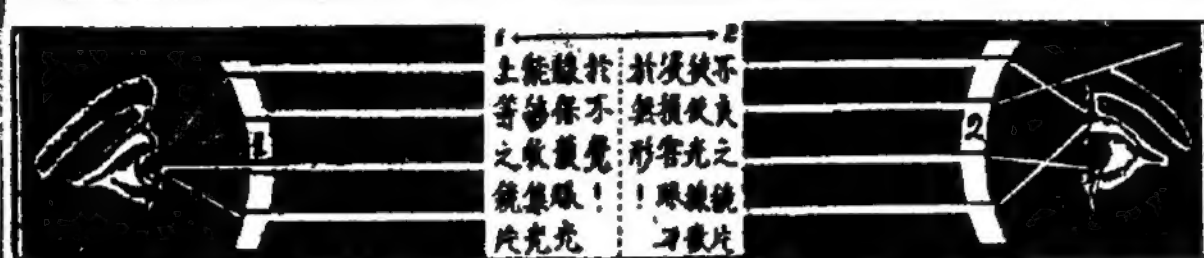 1 2
上等之鏡片
能够收集光
線保護眼光
於不覺!
不良之鏡片
使光線散
損害眼力
於無形!
1
2